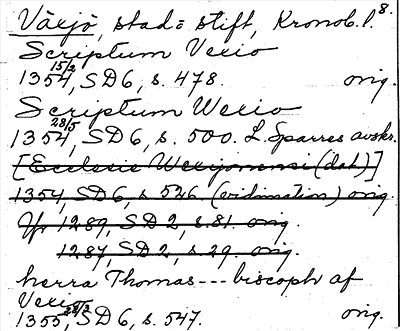 Växjö, stad o stift, Kronob. l. 8.
Scriptum Vexio
1354 15/2, SD 6, s. 478. orig.
Scriptum Wexio
1354 28/5, SD 6, s. 500. L. Sparres avskr.
[Ecclesie Wexionensi (dat)]
1354, SD 6, s. 526 (vidimation) orig.
1289, SD 2, s. 81. orig.
1287, SD 2, s. 29. orig.
herra Thomas --- biscoph af
Vexio
1355, SD 6, s. 547. orig.